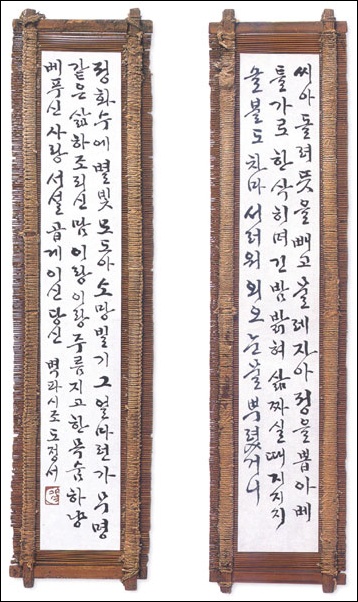 씨아 돌려 뜻을 빼고 물레 자아 정을 뽑아 베
틀 가로 한 삭히며 긴 밤 밝혀 삶 짜실 때 지지지
울 불도 차마 서러워 외오 눈물 뿌렸거니
정화수에 별빛 모도아 소망 빌기 그 얼마련가 무명
같은 삶 하 조리신 맘 이랑이랑 주름지고 한 목숨 하냥
베푸신 사랑 서설 곱게 이신 당신 벽파 시조 도정 서